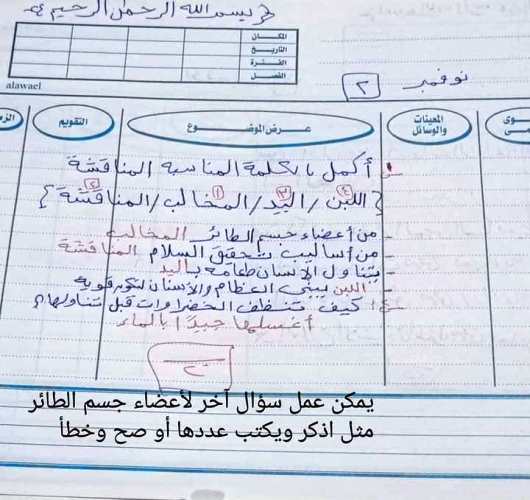 بسم الله الرحمن الرحيم
المكــان
التاريــخ
الفتــرة
الفصــل
alawael
نوفمبر ٢
المعينات والوسائل
عــرض الموضــوع
التقويم
١ أكمل بالكلمة المناسبة المناقشة
{ اللبن ٤ / اليد ٣ / المخالب ١ / المناقشة ٢ }
- من أعضاء جسم الطائر المخالب
- من أساليب تحقق السلام المناقشة
- يتناول الإنسان طعامه باليد
- اللبن يبني العظام والأسنان لتكون قوية
كيف تنظف الخضراوات قبل تناولها؟
أغسلها جيدًا بالماء
٢
يمكن عمل سؤال آخر لأعضاء جسم الطائر
مثل اذكر ويكتب عددها أو صح وخطأ